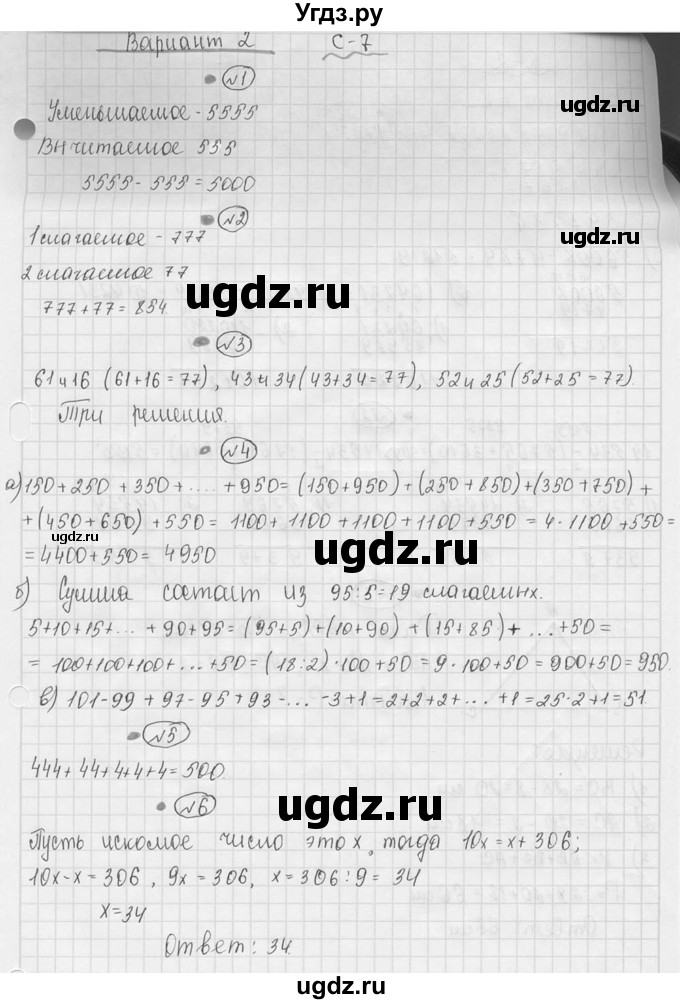 Угдз.ру
Вариант 2 С-7
ugdz.ru
№1
Уменьшаемое - 5555
ugdz.ru
Вычитаемое 555
5555 - 555 = 5000
№2
1 слагаемое - 777
ugdz.ru
2 слагаемое 77
777 + 77 = 854.
ugdz.ru
№3
61 и 16 (61+16 = 77), 43 и 34 (43+34 = 77), 52 и 25 (52+25 = 77).
Три решения.
№4
а) 150 + 250 + 350 + .... + 950 = (150+950) + (250 + 850) + (350 + 750) +
+ (450 + 650) + 550 = 1100 + 1100 + 1100 + 1100 + 550 = 4 · 1100 + 550 =
ugdz.ru
= 4400 + 550 = 4950
ugdz.ru
б) Сумма состаит из 95:5=19 слагаемых.
5+10+15+... + 90+95 = (95+5) + (10+90) + (15+85) + ... + 50 =
= 100+100+100+ ... + 50 = (18:2) · 100 + 50 = 9 · 100 + 50 = 900+50 = 950.
в) 101-99 + 97-95 + 93 - ... -3+1 = 2+2+2+ ... + 1 = 25 · 2 + 1 = 51.
№5
444 + 44 + 4 + 4 + 4 = 500.
ugdz.ru
№6
Пусть искомое число это x, тогда 10x = x + 306;
10x - x = 306, 9x = 306, x = 306 : 9 = 34
x = 34
Ответ: 34.
ugdz.ru
ugdz.ru